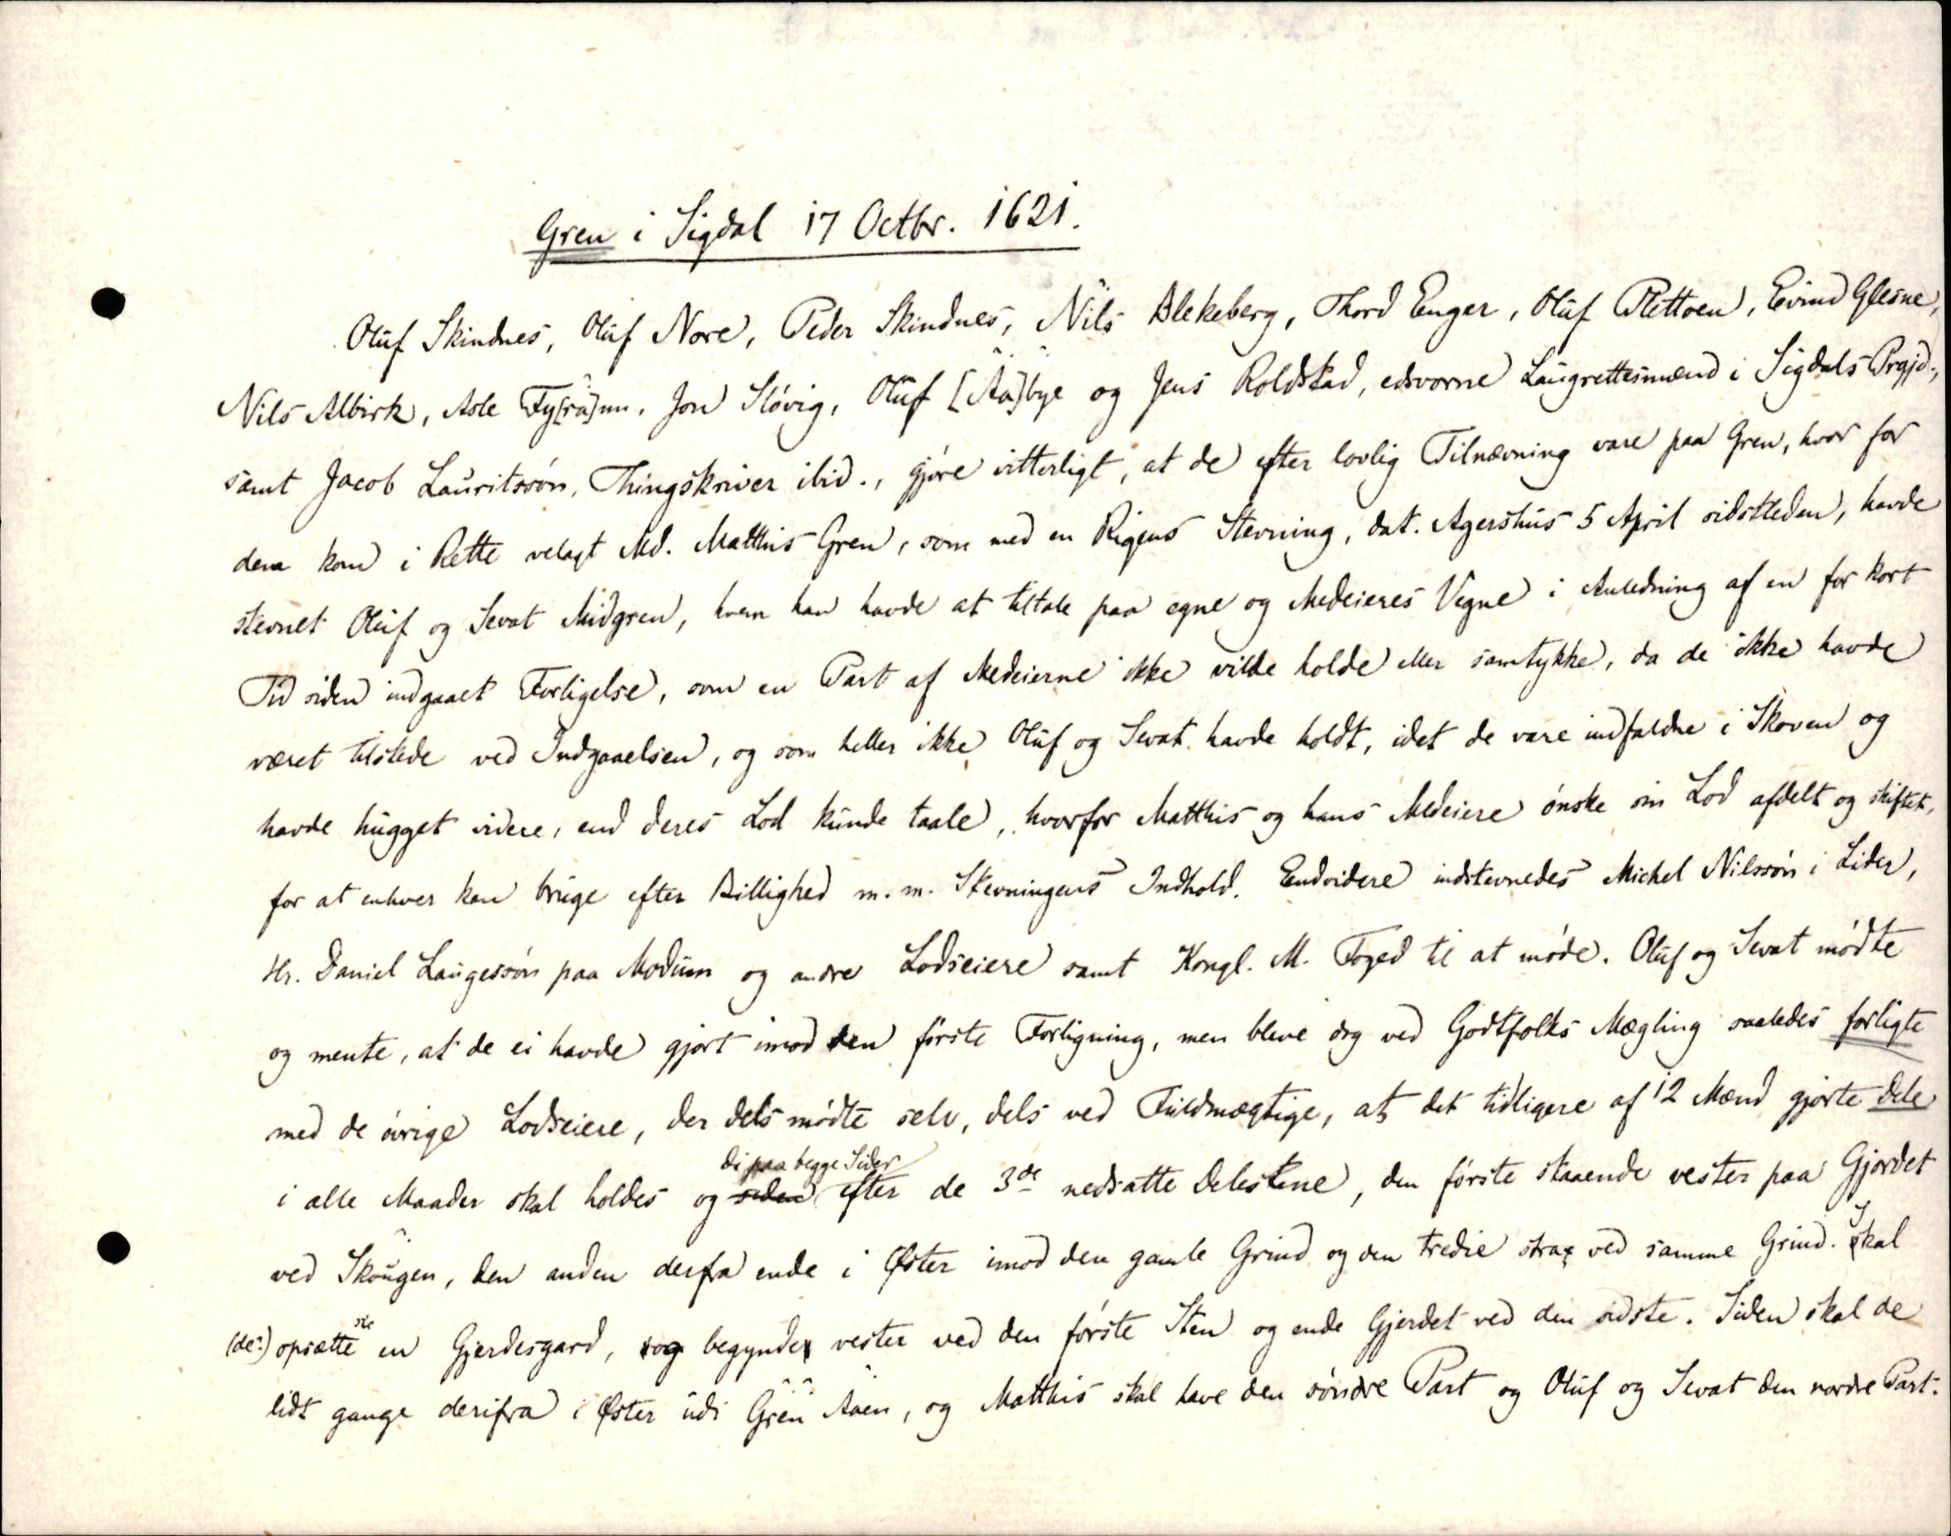 Gren i Sigdal 17 Octbr. 1621.
Oluf Skindnes, Oluf Nore, Peder Skindnes, Nils Blekeberg, Thord Enger, Oluf Plettoen, Eivind Glesne,
Nils Albirk, Asle Fy[rå]nn, Jon Støvig, Oluf [Åa]bye og Jens Roldstad, edsvorne Laugrettesmænd i Sigdals Prgjd.,
samt Jacob Lauritssøn, Thingskriver ibid., gjøre vitterligt, at de efter lovlig Tilnævning vare paa Gren, hvor for
dem kom i Rette velagt Md. Matthis Gren, som med en Rigens Stevning, dat. Agershus 5 April sidstleden, havde
stevnet Oluf og Sevat Midgren, hvem han havde at tiltale paa egne og Medeieres Vegne i Anledning af en for kort
Tid siden indgaaet Forligelse, som en Part af Medeierne ikke vilde holde eller samtykke, da de ikke havde
været tilstede ved Indgaaelsen, og som heller ikke Oluf og Sevat havde holdt, idet de vare indfaldne i Skoven og
havde hugget videre, end deres Lod kunde taale, hvorfor Matthis og hans Medeiere ønske sin Lod afdelt og skiftet,
for at enhver kan bruge efter Billighed m. m. Stevningens Indhold. Endvidere indstevnedes Michel Nilssøn i Lider,
Hr. Daniel Laugessøn paa Modum og andre Lodseiere samt Kongl. M. Foged til at møde. Oluf og Sevat mødte
og mente, at de ei havde gjort imod den første Forligning, men bleve dog ved Godtfolks Mægling saaledes forligte
med de øvrige Lodseiere, der dels mødte selv, dels ved Fuldmægtige, at det tidligere af 12 Mænd gjorte Dele
di paa begge Sider
i alle Maader skal holdes og siden efter de 3de nedsatte Delestene, den første staaende vester paa Gjordet
ved Skougen, den anden derfra ende i Øster imod den gamle Grind og den tredie strax ved samme Grind. Skal
(de:) opsætte en Gjerdesgard, og begynde vester ved den første Sten og ende Gjerdet ved den sidste. Siden skal de
lidt gange derifra i Øster udi Gren Åaen, og Matthis skal have den søndre Part og Oluf og Sevat den nordre Part.